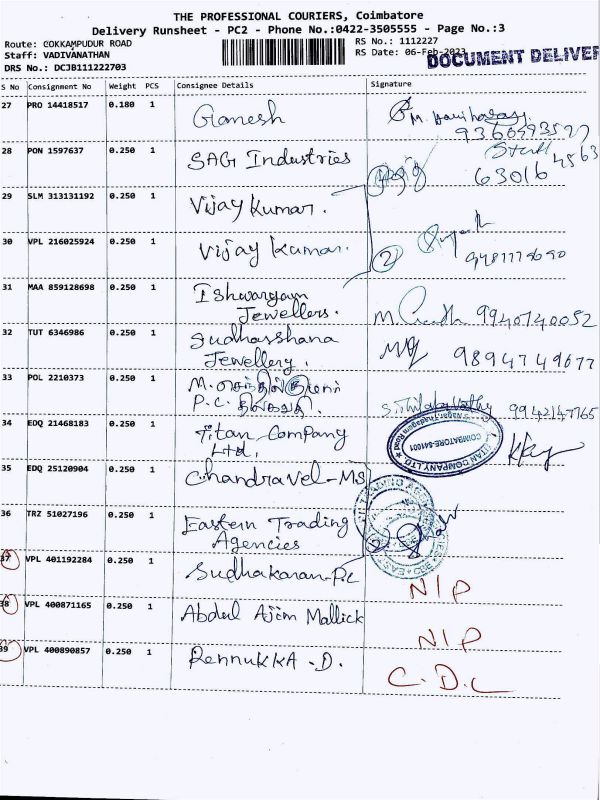 THE PROFESSIONAL COURIERS, Coimbatore
Delivery Runsheet - PC2 - Phone No.:0422-3505555 - Page No.:3
Route: COKKAMPUDUR ROAD
Staff: VADIVANATHAN
DRS No.: DCJB111222703
RS No.: 1112227
RS Date: 06-Feb-2023
DOCUMENT DELIVER
S No Consignment No Weight PCS Consignee Details Signature
27 PRO 14418517 0.180 1 Ganesh
28 PON 1597637 0.250 1 SAGI Industries
63016 4563
29 SLM 313131192 0.250 1 Vijay Kumar.
30 VPL 216025924 0.250 1 Vijay Kumar. 2
31 MAA 859128698 0.250 1 Ishwaryam
Jewellers. 9940740052
32 TUT 6346986 0.250 1 Sudharshana
Jewellery. 9894749677
33 POL 2210373 0.250 1 M.
P.C. 9942147765
34 EDQ 21468183 0.250 1 Titan Company
Ltd.
TITAN COMPANY LTD
COIMBATORE-641001
35 EDQ 25120904 0.250 1 Chandravel-MS
36 TRZ 51027196 0.250 1 Eastern Trading
Agencies
37 VPL 401192284 0.250 1 Sudhakaran-P.C N/P
38 VPL 400871165 0.250 1 Abdul Ajim Mallick N/P
39 VPL 400890857 0.250 1 Rennukka -D. C.D.L